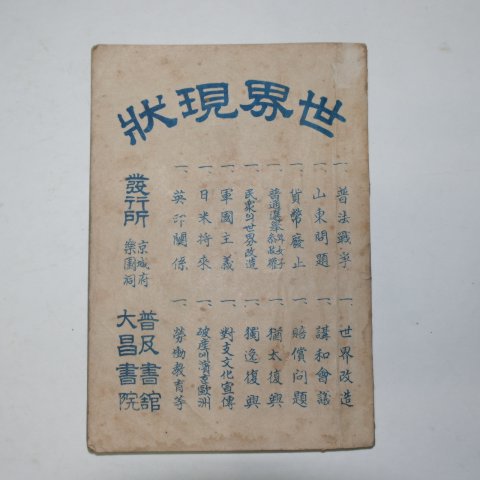 世界現狀
一、普法戰爭 一、世界改造
一、山東問題 一、講和會議
一、貨幣廢止 一、賠償问題
一、普通選擧 女子參政權 一、猶太復興
一、民衆의世界改造 一、獨逸復興
一、軍國主義 一、對支文化宣傳
一、日米將來 一、破産에濱한歐洲
一、英印關係 一、勞働敎育等
發行所
京城府 普及書舘
樂園洞 大昌書院